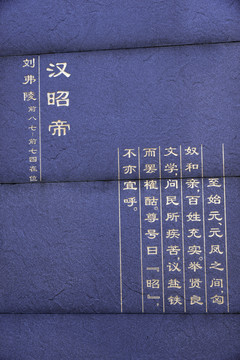 汉昭帝
刘弗陵 前八七—前七四在位
至始元、元凤之间,匈
奴和亲,百姓充实。举贤良
文学,问民所疾苦,议盐铁
而罢榷酤。尊号曰『昭』,
不亦宜呼。